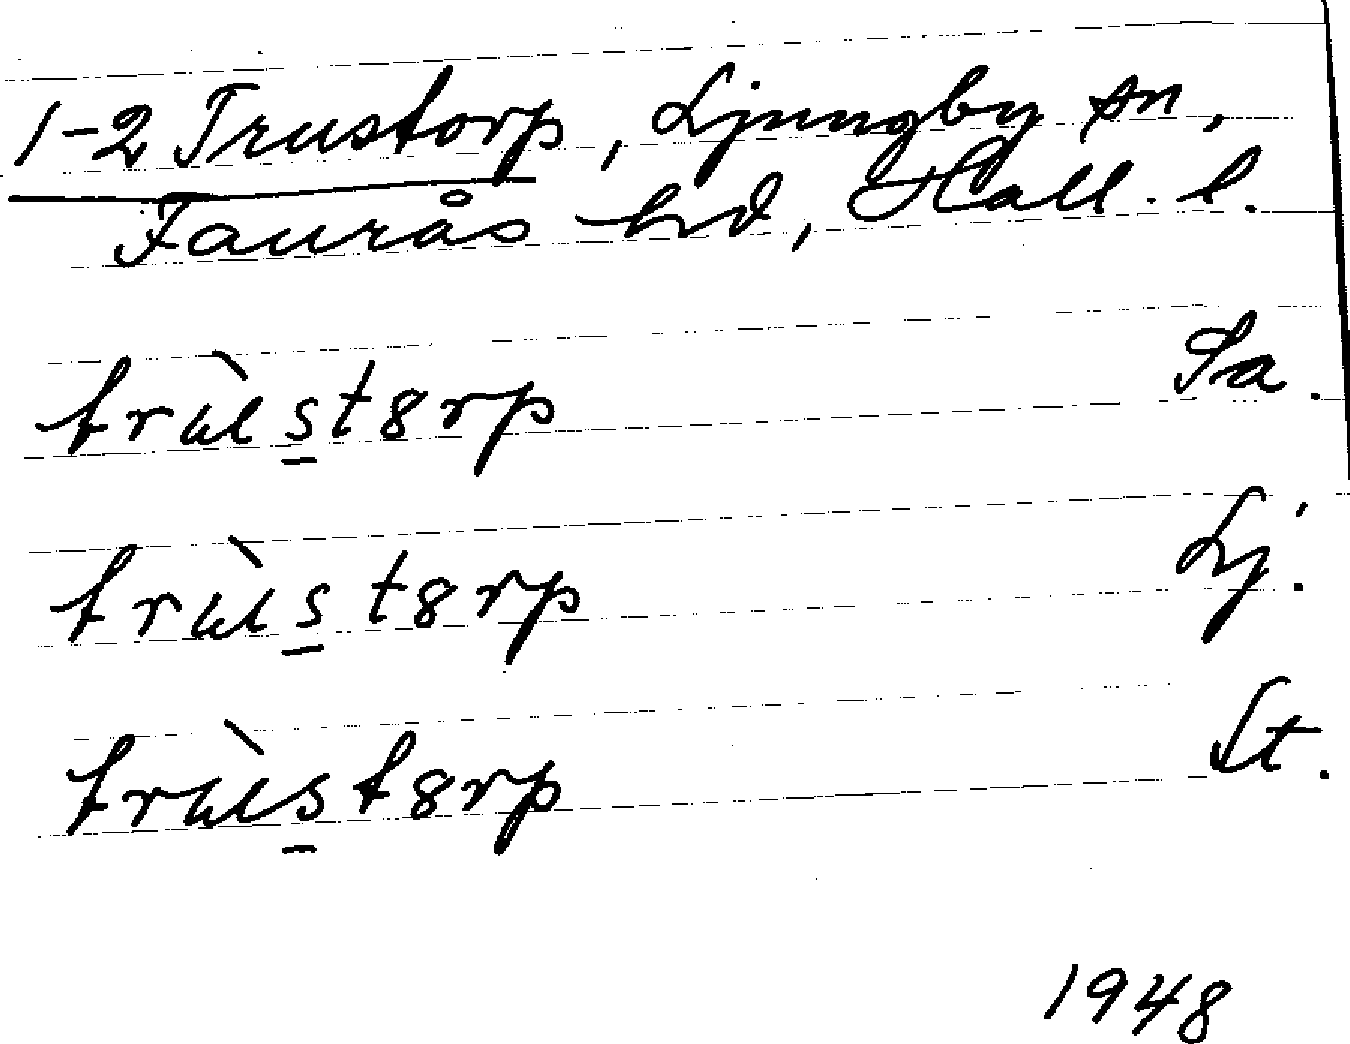 1-2 Trustorp, Ljungby sn,
Faurås hd, Hall. l.
trùs̲t8rp Sa.
trùs̲t8rp Lj.
trùs̲t8rp St.
1948